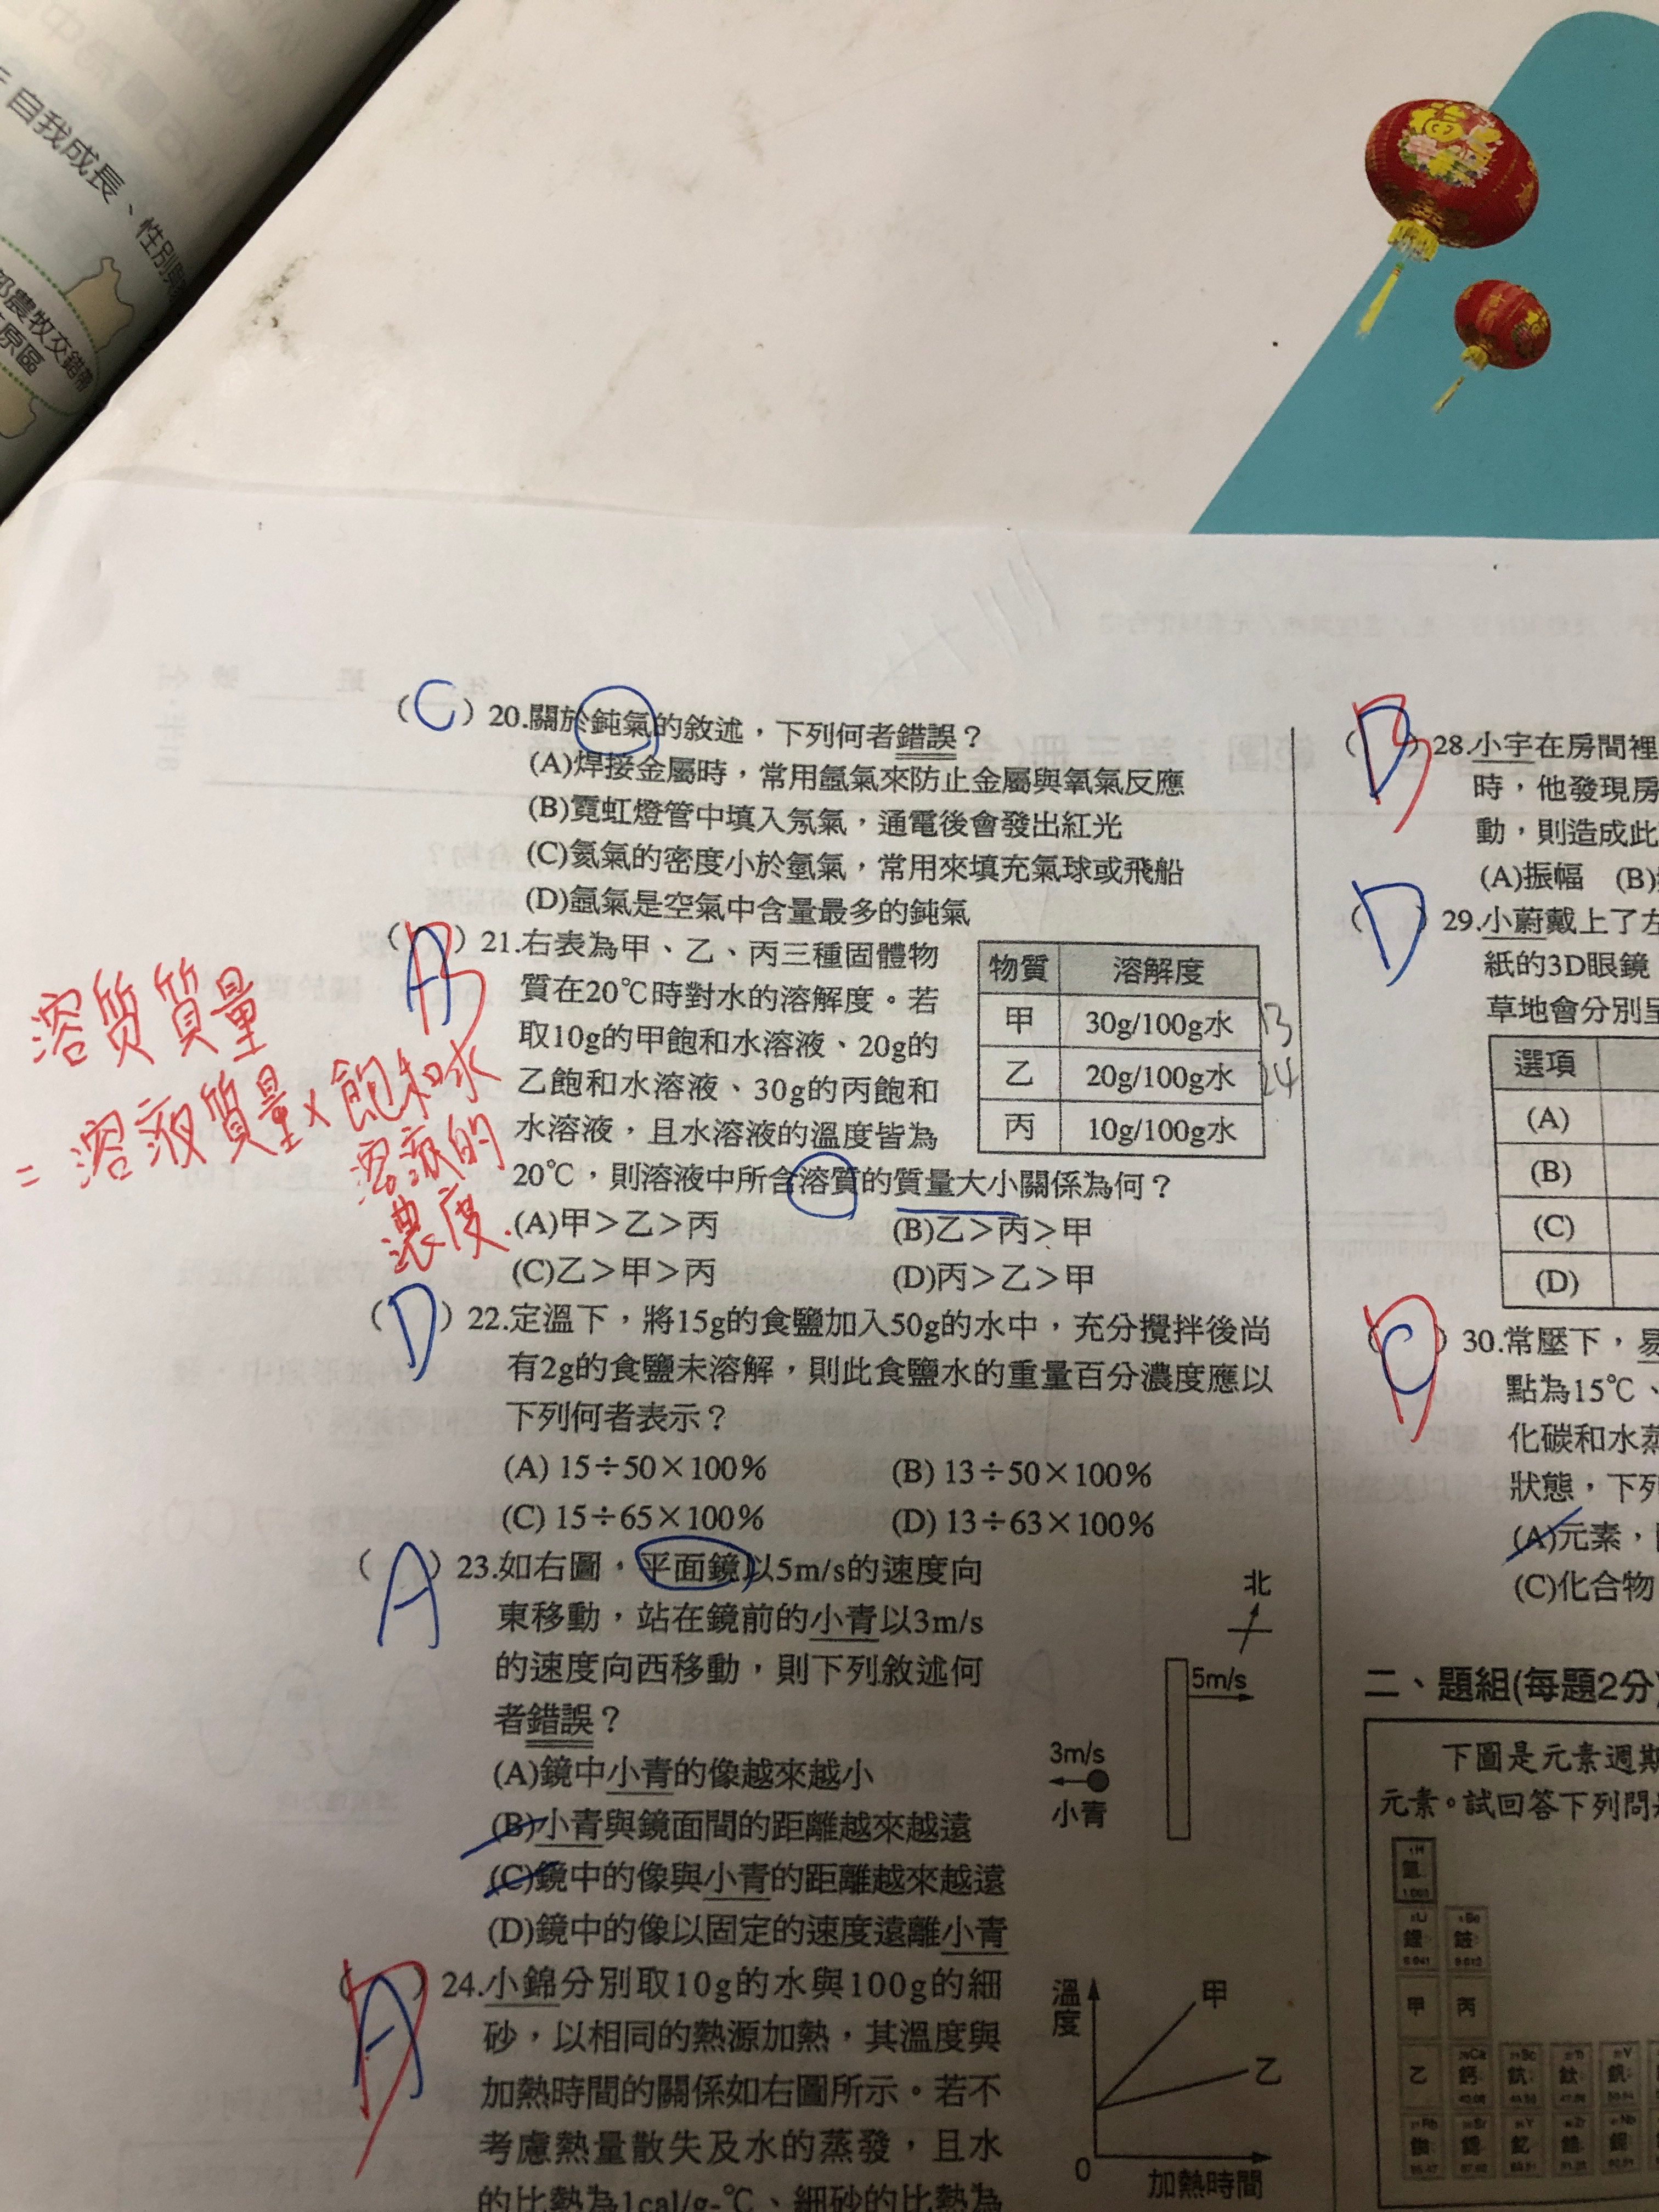 自我成長、性別
農牧交錯帶
原區
(C) 20.關於鈍氣的敘述，下列何者錯誤？
(A)焊接金屬時，常用氬氣來防止金屬與氧氣反應
(B)霓虹燈管中填入氖氣，通電後會發出紅光
(C)氦氣的密度小於氫氣，常用來填充氣球或飛船
(D)氬氣是空氣中含量最多的鈍氣
(B) 21.右表為甲、乙、丙三種固體物
質在20℃時對水的溶解度。若
取10g的甲飽和水溶液、20g的
乙飽和水溶液、30g的丙飽和
水溶液，且水溶液的溫度皆為
20℃，則溶液中所含溶質的質量大小關係為何？
(A)甲＞乙＞丙 (B)乙＞丙＞甲
(C)乙＞甲＞丙 (D)丙＞乙＞甲
物質 溶解度
甲 30g/100g水 13
乙 20g/100g水 24
丙 10g/100g水
溶质質量
= 溶液質量×飽和水
溶液的
濃度.
(D) 22.定溫下，將15g的食鹽加入50g的水中，充分攪拌後尚
有2g的食鹽未溶解，則此食鹽水的重量百分濃度應以
下列何者表示？
(A) 15÷50×100% (B) 13÷50×100%
(C) 15÷65×100% (D) 13÷63×100%
(A) 23.如右圖，平面鏡以5m/s的速度向
東移動，站在鏡前的小青以3m/s
的速度向西移動，則下列敘述何
者錯誤？
(A)鏡中小青的像越來越小
(B)小青與鏡面間的距離越來越遠
(C)鏡中的像與小青的距離越來越遠
(D)鏡中的像以固定的速度遠離小青
北
5m/s
3m/s
小青
(A) 24.小錦分別取10g的水與100g的細
砂，以相同的熱源加熱，其溫度與
加熱時間的關係如右圖所示。若不
考慮熱量散失及水的蒸發，且水
的比熱為1cal/g-℃、細砂的比熱為
溫度
甲
乙
0
加熱時間
(B) 28.小宇在房間裡
時，他發現房
動，則造成此
(A)振幅 (B)
(D) 29.小蔚戴上了左
紙的3D眼鏡
草地會分別呈
選項
(A)
(B)
(C)
(D)
(C) 30.常壓下，易
點為15℃、
化碳和水蒸
狀態，下列
(A)元素，
(C)化合物
二、題組(每題2分)
下圖是元素週期
元素。試回答下列問
氫
鋰 鈹
甲 丙
乙 鈣 鈧 鈦 釩
銣 鍶 釔 鋯 鈮